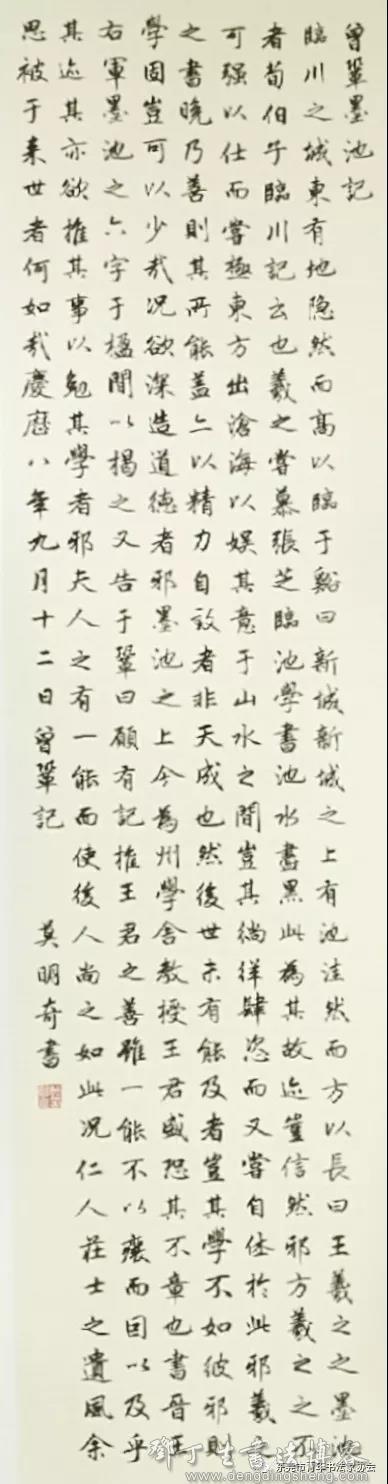 曾鞏墨池記
臨川之城東有地隐然而高以臨于谿曰新城新城之上有池洼然而方以長曰王羲之之墨池
者荀伯子臨川記云也羲之嘗慕張芝臨池學書池水盡黑此為其故迹豈信然邪方羲之之不
可强以仕而嘗極東方出滄海以娱其意于山水之間豈其徜徉肆恣而又嘗自休於此邪羲
之書晚乃善則其所能盖亦以精力自致者非天成也然後世未有能及者豈其學不如彼邪則
學固豈可以少哉况欲深造道德者邪墨池之上今為州學舍教授王君盛恐其不章也書晉王
右軍墨池之六字于楹間以揭之又告于鞏曰願有記推王君之善雖一能不以廢而因以及乎
其迹其亦欲推其事以勉其學者邪夫人之有一能而使後人尚之如此况仁人莊士之遺風余
思被于来世者何如哉慶曆八年九月十二日曾鞏記 莫明奇書
鄧丁生書法博客
dengdingsheng.com
东莞市青年书法家协会